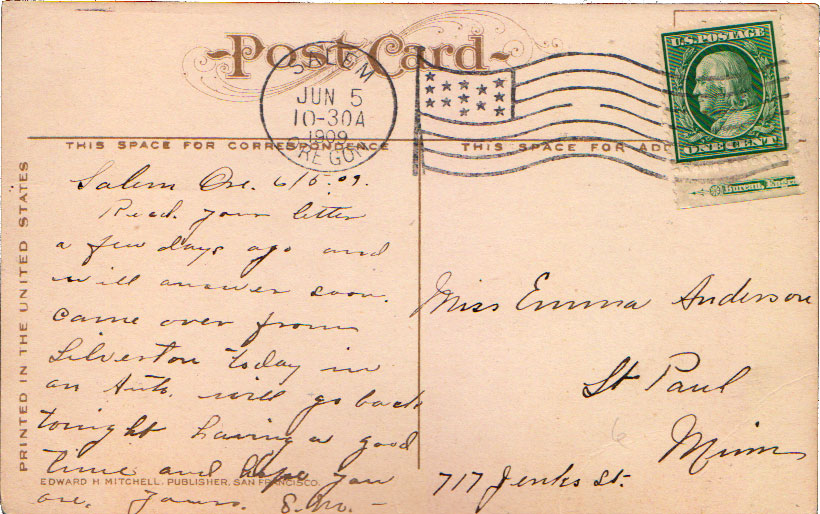 Post Card
SALEM
JUN 5
10-30A
1909
OREGON
U.S. POSTAGE
ONE CENT
Bureau, Engr
THIS SPACE FOR CORRESPONDENCE
THIS SPACE FOR ADD
PRINTED IN THE UNITED STATES
Salem Ore. 6/5.09.
Recd. your letter
a few days ago and
will answer soon.
Came over from
Silverton today in
an Auto. will go back
tonight having a good
time and hope you
are. Yours. S.M. -
EDWARD H. MITCHELL, PUBLISHER, SAN FRANCISCO.
Miss Emma Anderson
St Paul
Minn
717 Jenks St.